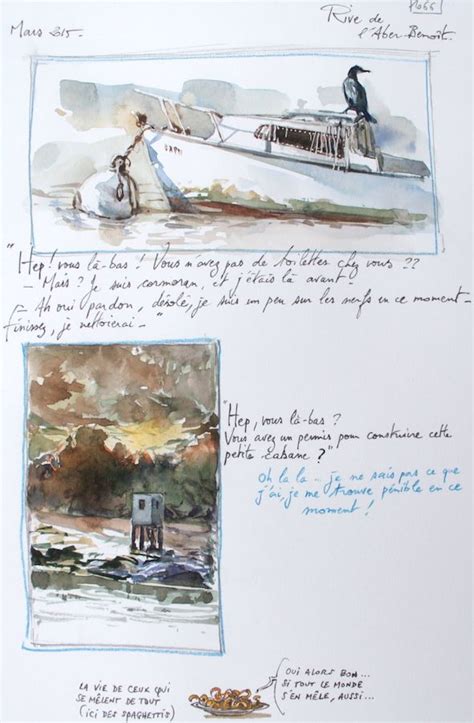 Mars 2015.
Rive de
l'Aber-Benoît.
"Hep! vous là-bas! Vous n'avez pas de toilettes chez vous??
- Mais? Je suis cormoran, et j'étais là avant -
- Ah oui pardon, désolé, je suis un peu sur les nerfs en ce moment -
finissez, je nettoierai - "
"Hep, vous là-bas?
Vous avez un permis pour construire cette
petite cabane?"
Oh la la - je ne sais pas ce que
j'ai, je me trouve pénible en ce
moment!
LA VIE DE CEUX QUI
SE MÊLENT DE TOUT
(ICI DES SPAGHETTIS)
OUI ALORS BON...
SI TOUT LE MONDE
S'EN MÊLE, AUSSI...